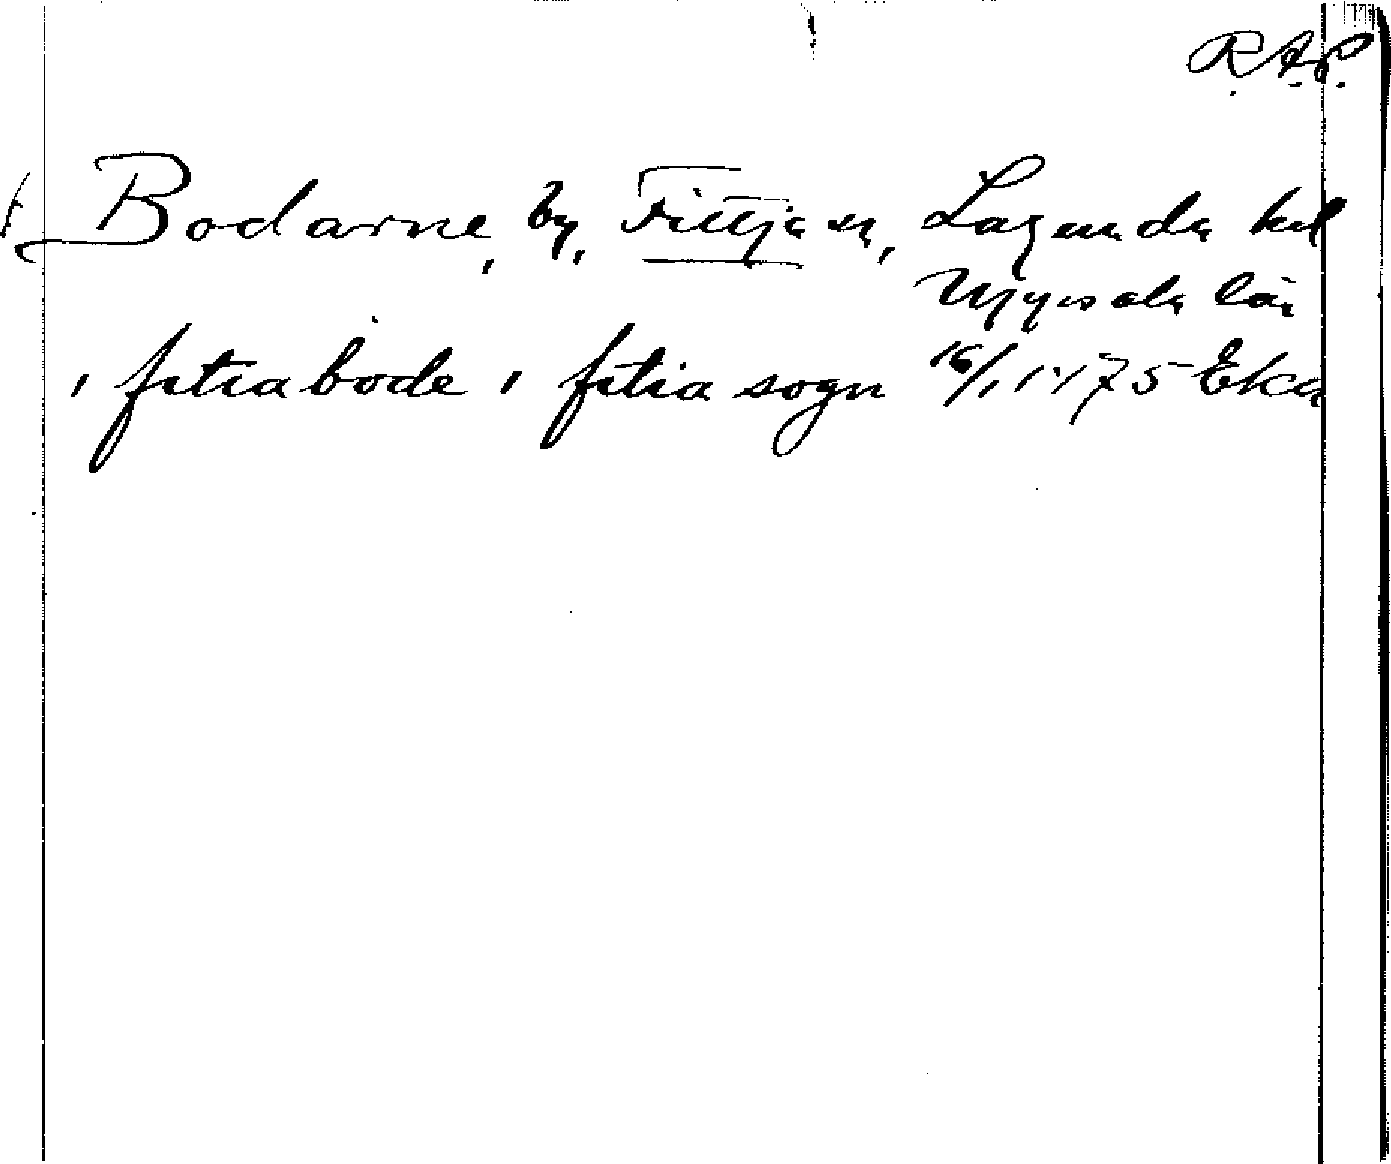 R.A.P.
Bodarne, by, Fittja sn, Lagunda hd
Uppsala län
i fitia bode i fitia sogn 16/1 1475 Eka